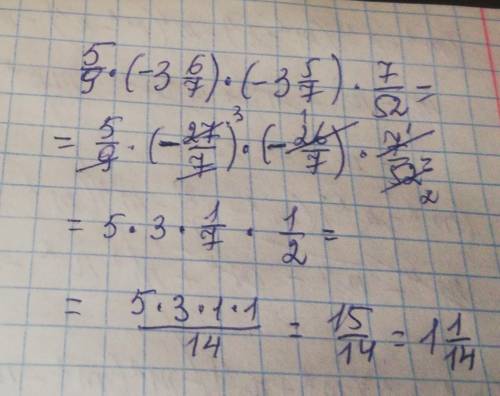 5/9 · (-3 6/7) · (-3 5/7) · 7/52 =
= 5/9 · (-27/7)³ · (-26/7)¹ · 7¹/52 2
= 5 · 3 · 1/7 · 1/2 =
= 5·3·1·1/14 = 15/14 = 1 1/14